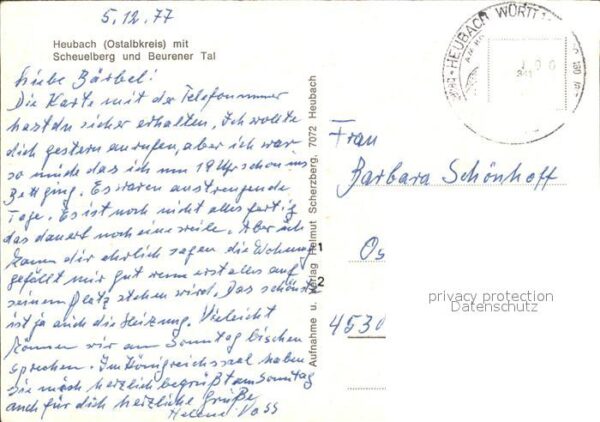 5.12.77
Heubach (Ostalbkreis) mit
Scheuelberg und Beurener Tal
Liebe Bärbel!
Die Karte mit der Telefonummer
hast du sicher erhalten, Ich wollte
dich gestern anrufen, aber ich war
so müde das ich um 19 Uhr schon ins
Bett ging. Es waren anstrengende
Tage. Es ist noch nicht alles fertig
das dauert noch eine weile. Aber ich
kann dir ehrlich sagen die Wohnung
gefällt mir gut wenn erst alles auf
seinem Platz stehen wird. Das schönste
ist ja auch die Heizung. Vieleicht
können wir am Sonntag bischen
sprechen. Im Königreichssal haben
Sie mich herzlich begrüßt am Sonntag
auch für dich herzliche Grüße
Helene Voss
Aufnahme u. Verlag Helmut Scherzberg, 7072 Heubach
HEUBACH WÜRTT
Frau
Barbara Schönhoff
Os
4530
privacy protection
Datenschutz